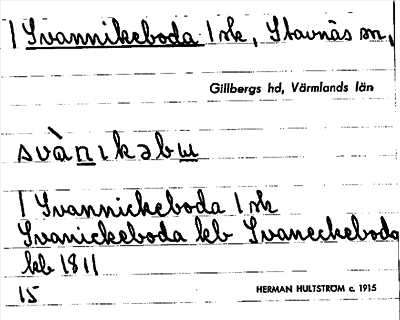 | Svannikeboda | sk, Stavnäs sn,
Gillbergs hd, Värmlands län
svànıkəbɯ
| Svannickeboda | sk
Svanickeboda kb Svaneckeboda
kb 1811
15
HERMAN HULTSTRÖM c. 1915